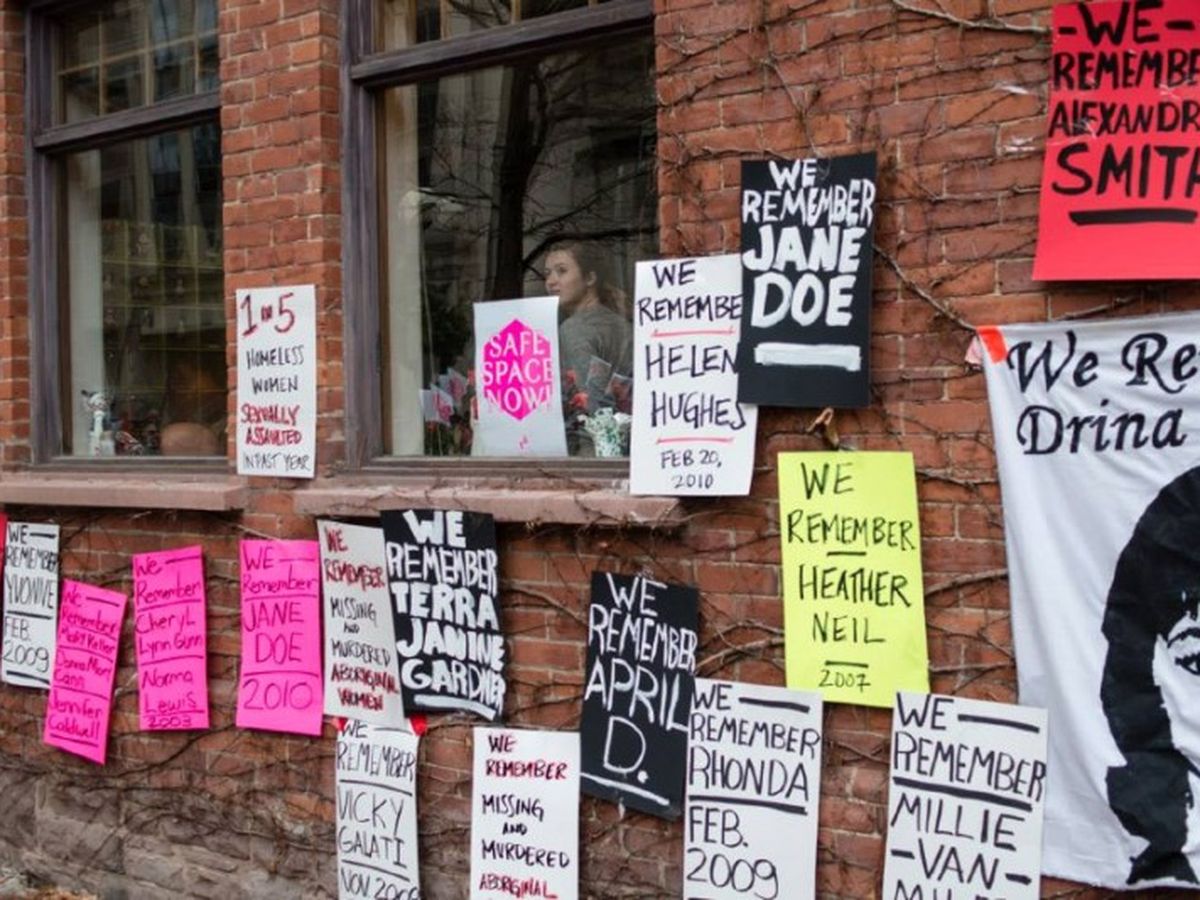 -WE-
REMEMBE
ALEXANDR
SMITH
WE
REMEMBER
JANE
DOE
WE
REMEMBE
HELEN
HUGHES
FEB 20,
2010
1 IN 5
HOMELESS
WOMEN
SEXUALLY
ASSAULTED
IN PAST YEAR
SAFE
SPACE
NOW!
We Re
Drina
WE
REMEMBER
HEATHER
NEIL
2007
WE
REMEMBER
YVONNE
FEB.
2009
We
Remember
Donna
Cann
Jennifer
Caldwell
We
Remember
Cheryl
Lynn Gunn
Norma
Lewis
2003
WE
Remember
JANE
DOE
2010
WE
REMEMBER
MISSING
AND
MURDERED
ABORIGINAL
WOMEN
WE
REMEMBER
TERRA
JANINE
GARDNER
WE
REMEMBER
APRIL
D.
WE
REMEMBER
VICKY
GALATI
NOV
WE
REMEMBER
MISSING
AND
MURDERED
ABORIGINAL
WE
REMEMBER
RHONDA
FEB.
2009
WE
REMEMBER
MILLIE
-VAN-